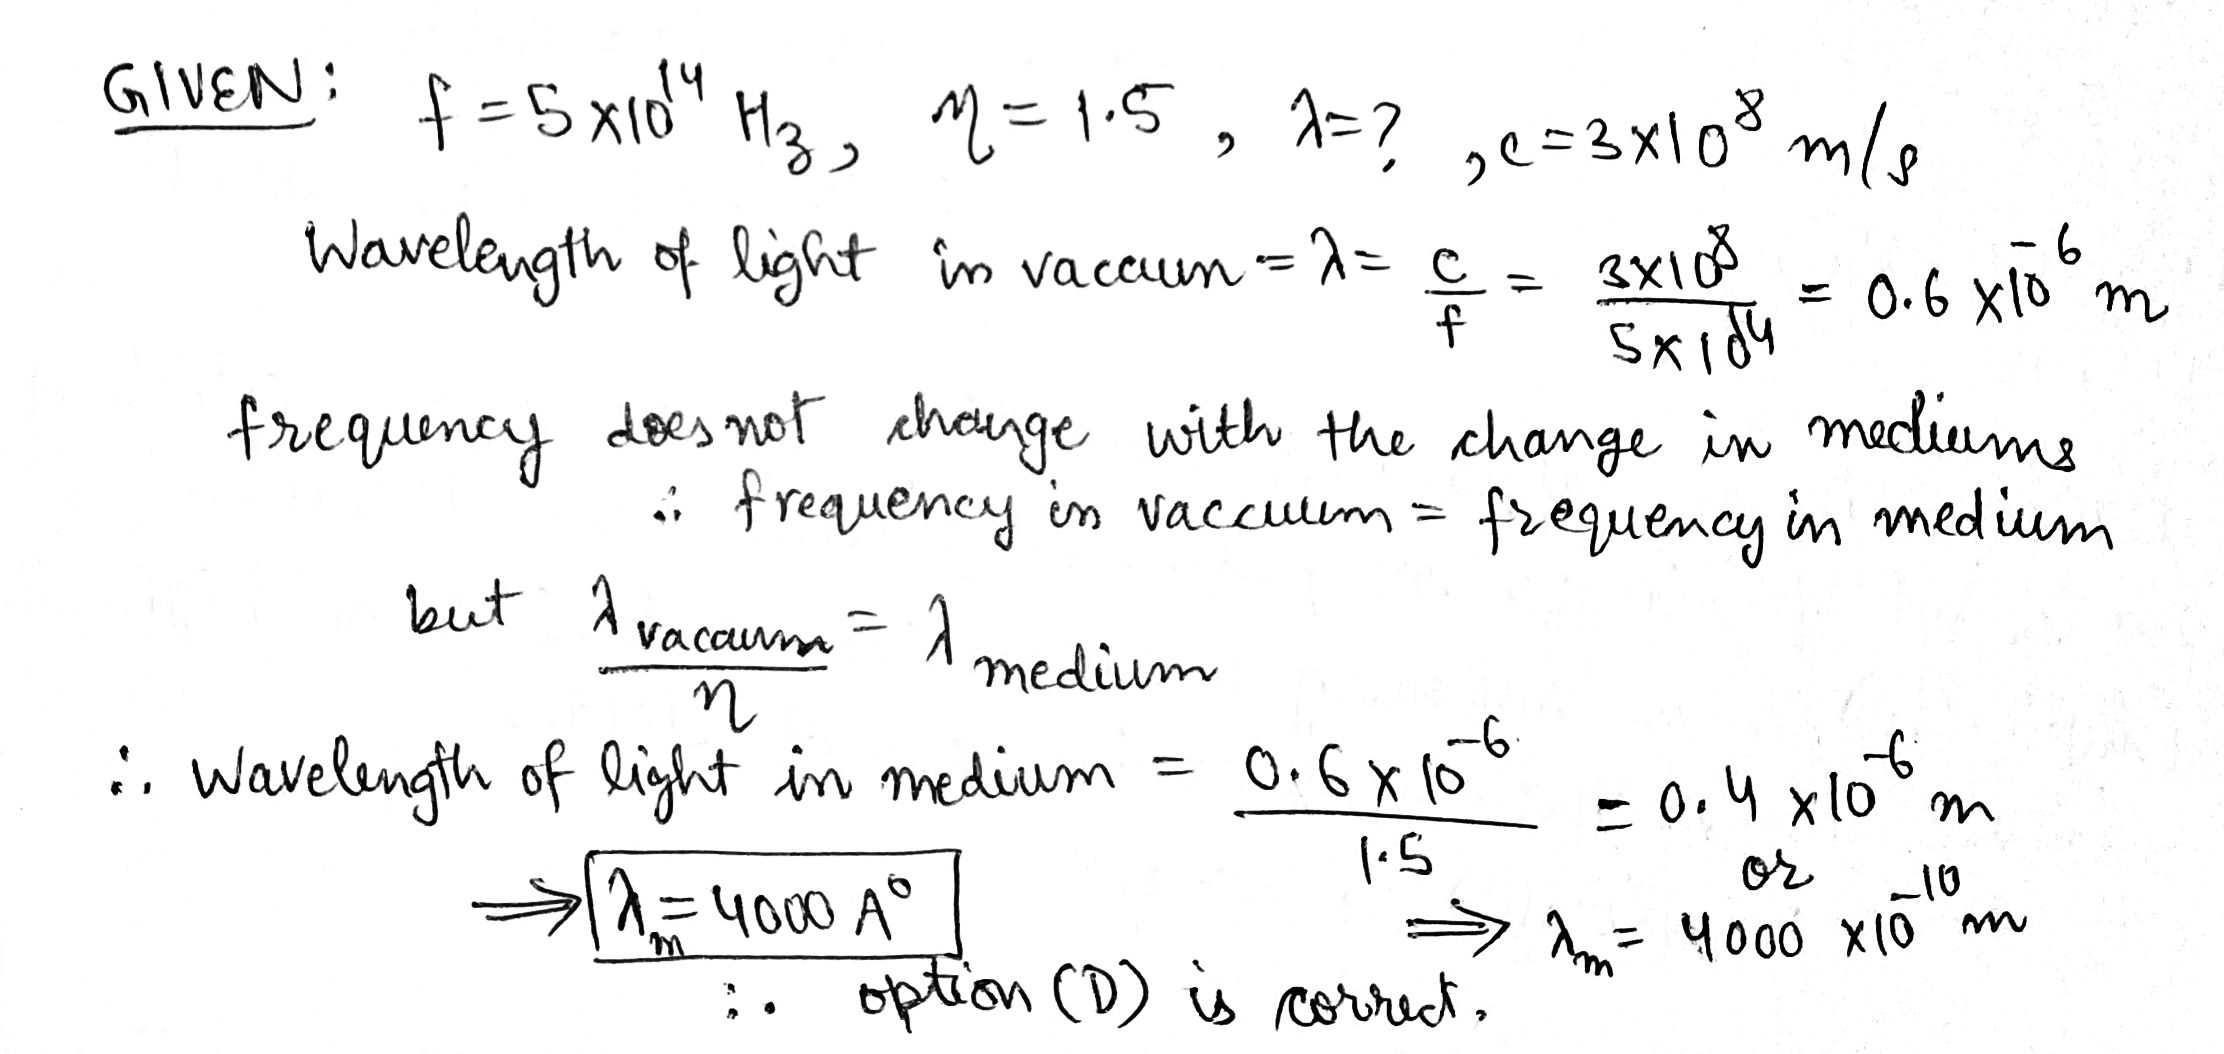 GIVEN: f = 5 x10^14 Hz, η = 1.5 , λ=? , c=3x10^8 m/s
Wavelength of light in vacaum = λ = c/f = 3x10^8/5x10^14 = 0.6 x10^-6 m
frequency does not change with the change in mediums
∴ frequency in vaccuum = frequency in medium
but λ vacaum/η = λ medium
∴ wavelength of light in medium = 0.6 x 10^-6/1.5 = 0.4 x10^-6 m
or
⇒ λm = 4000 A° ⇒ λm = 4000 x10^-10 m
∴ option (D) is correct.